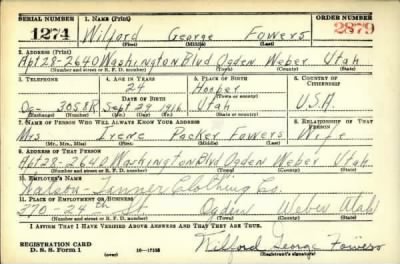 SERIAL NUMBER 1. NAME (Print) ORDER NUMBER
1274 Wilford George Fowers 2879
(First) (Middle) (Last)
2. ADDRESS (Print)
Apt 28-2640 Washington Blvd Ogden Weber Utah
(Number and street or R. F. D. number) (Town) (County) (State)
3. TELEPHONE 4. AGE IN YEARS 5. PLACE OF BIRTH 6. COUNTRY OF CITIZENSHIP
24 Hooper
DATE OF BIRTH (Town or county)
Og- 3058R Sept. 29 1916 Utah U.S.A.
(Exchange) (Number) (Mo.) (Day) (Yr.) (State or country)
7. NAME OF PERSON WHO WILL ALWAYS KNOW YOUR ADDRESS 8. RELATIONSHIP OF THAT PERSON
Mrs Irene Packer Fowers Wife
(Mr., Mrs., Miss) (First) (Middle) (Last)
9. ADDRESS OF THAT PERSON
Apt 28-2640 Washington Blvd Ogden Weber Utah
(Number and street or R. F. D. number) (Town) (County) (State)
10. EMPLOYER'S NAME
Watson-Tanner Clothing Co.
11. PLACE OF EMPLOYMENT OR BUSINESS
370-24th St Ogden Weber Utah
(Number and street or R. F. D. number) (Town) (County) (State)
I AFFIRM THAT I HAVE VERIFIED ABOVE ANSWERS AND THAT THEY ARE TRUE.
REGISTRATION CARD
D. S. S. Form 1 16-17105 Wilford George Fowers
(Registrant's signature)